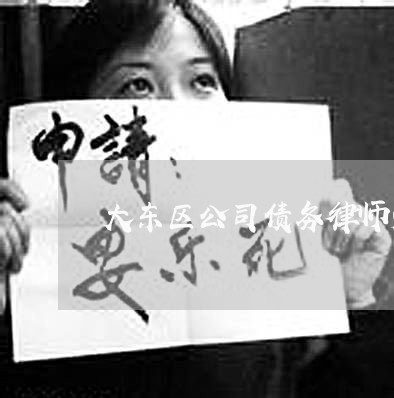 申請：
大东区公司债务律师
要乐死